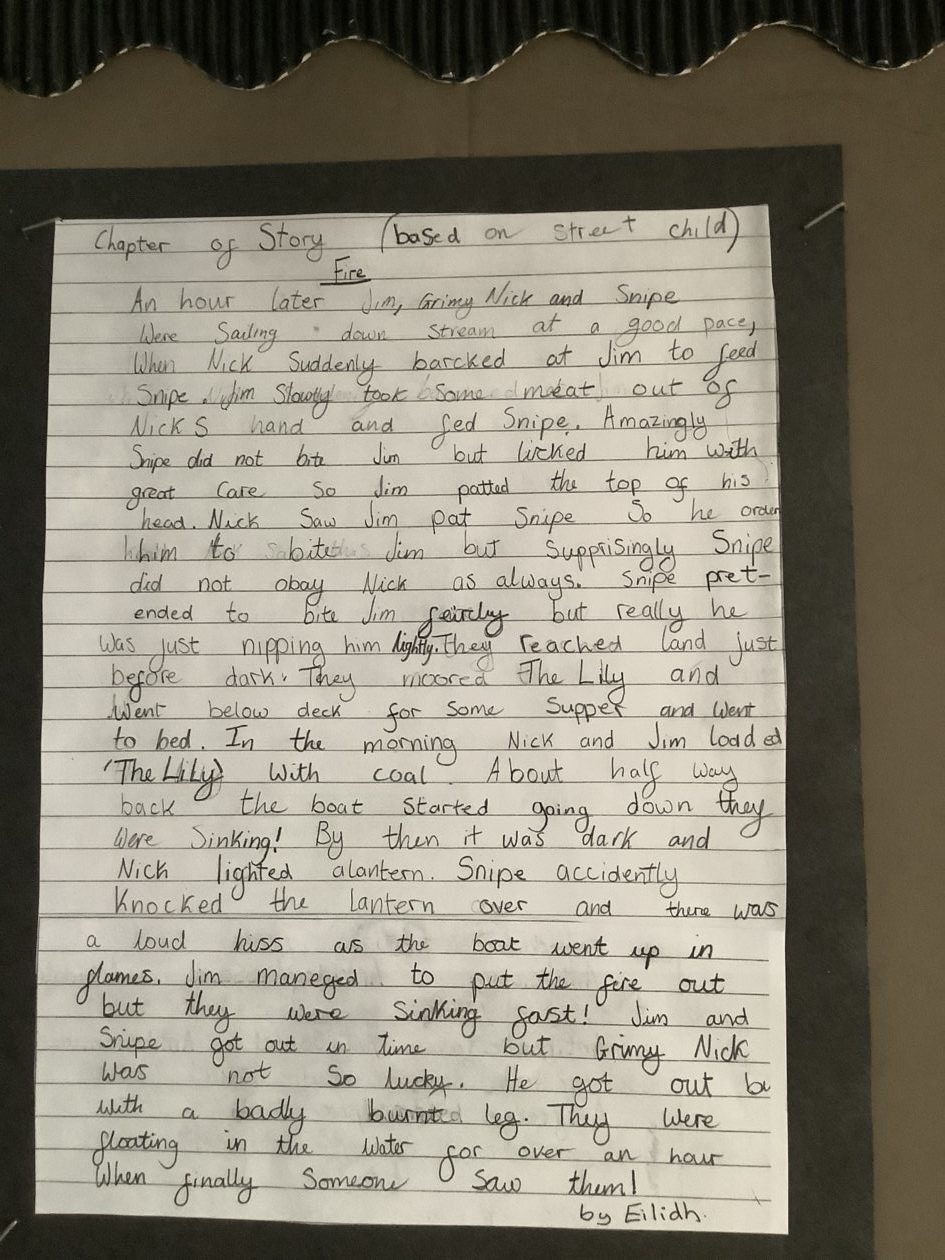 Chapter of Story (based on Street child)
Fire
An hour later Jim, Grimy Nick and Snipe
Were Sailing down stream at a good pace,
When Nick Suddenly barcked at Jim to feed
Snipe. Jim Slowly took Some meat out of
Nicks hand and fed Snipe. Amazingly
Snipe did not bite Jim but licked him with
great Care So Jim patted the top of his
head. Nick Saw Jim pat Snipe So he order
him to bite Jim but Supprisingly Snipe
did not obay Nick as always. Snipe pret-
ended to bite Jim feircly but really he
Was just nipping him lightly. They reached land just
before dark. They moored The Lily and
Went below deck for Some Supper and Went
to bed. In the morning Nick and Jim loaded
'The Lily) With coal. About half way
back the boat started going down they
Were Sinking! By then it was dark and
Nick lighted alantern. Snipe accidently
Knocked the lantern over and there was
a loud hiss as the boat went up in
flames. Jim maneged to put the fire out
but they were Sinking fast! Jim and
Snipe got out in time but Grimy Nick
Was not So lucky. He got out bu
With a badly burnt leg. They were
floating in the Water for over an hour
When finally Someone Saw them!
by Eilidh.